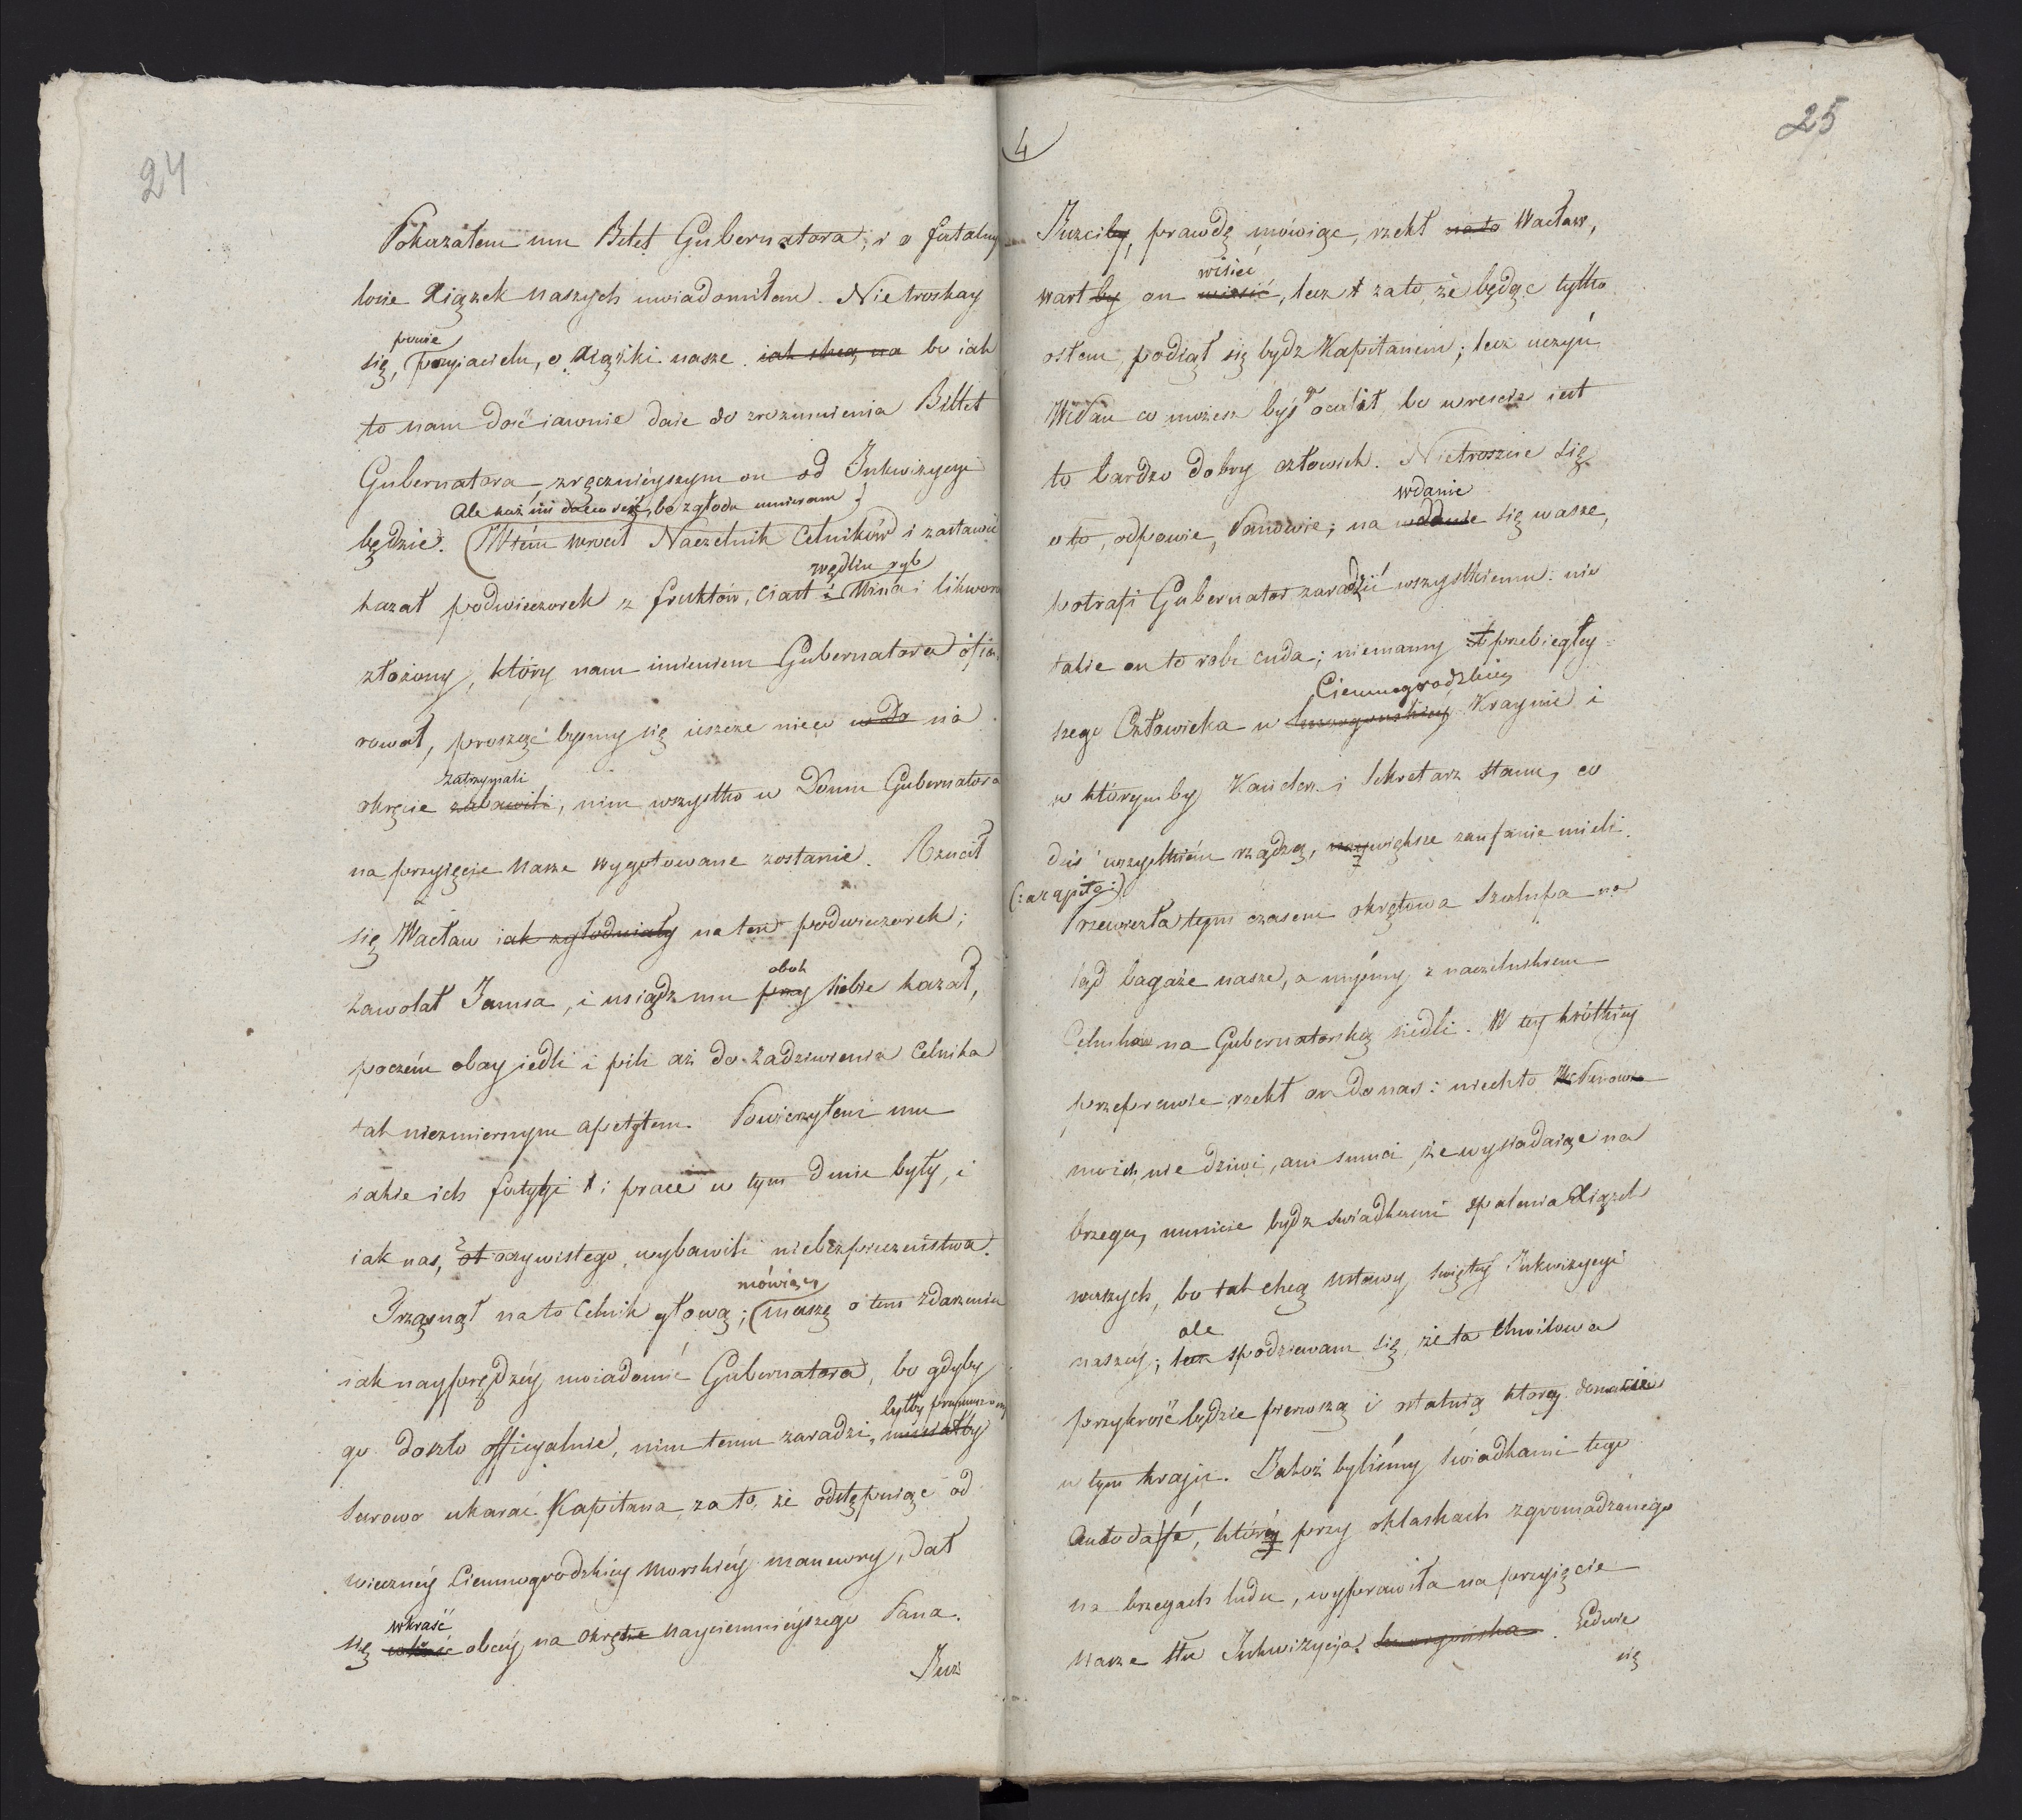 24
Pokazałem mu Bilet Gubernatora, i o fatalny
losie Xiązek naszych uwiadomiłem. Nietroskay
powie
się, Przyiacielu, o Xiąszki nasze iak bo iak
to nam dość iawnie daie do zrozumienia Billet
Gubernatora, zręcznieyszym on od Inkwizycyi
Ale każ mi dać co ieść, bo z głodu umieram
będzie. Wtém wrócił Naczelnik Celników i zastawić
wędlin ryb
kazał podwieczorek z fruktów, ciast i Wina i likworu
złożony, który nam imieniem Gubernatora ofia,
rował, prosząc byśmy się ieszcze nieco na
zatrzymali
okręcie zabawili, nim wszystko w Domu Gubernatora
na przyięcie nasze wygotowane zostanie. Rzucił
się Wacław iak zgłodniały na ten podwieczorek;
obok
zawołał Jamsa, i usiądz mu przy siebie kazał,
poczém obay iedli i pili aż do zadziwienia Celnika
tak niezmiernym apetytem. Powierzyłem mu
iakie ich fatygi i prace w tym dniu były, i
iak nas, z oczywistego, wybawili niebezpieczeństwa.
mówiąc
Trząsnął na to Celnik głową; muszę o tem zdarzeniu
iak nayprędzéy uwiadomić Gubernatora, bo gdyby
byłby przymuszony
go doszło officyalnie, nim temu zaradzi, musiałby
surowo ukarać Kapitana, za to, że odstępuiąc od
wieczney Ciemnogrodzkiey morskiéy manewry, dał
wkraść
się obcéy, na okręcie nayciemnieyszego Pana.
Juz
4
25
Juzciby, prawdę mówiąc, rzekł na to Wacław,
wisieć
wart by on wisić, lecz zato, że będąc tylko
osłem, podiął się bydz Kapitanem; lecz uczyń
WcPan co możesz byś go ocalił, bo wreście iest
to bardzo dobry człowiek. Nietroszcie się
wdanie
o to, odpowie, Panowie; na wdanie się wasze,
potrafi Gubernator zaradzić wszystkiemu: nie
takie on to robi cuda; niemamy przebiegłey
Ciemnogrodzkiey
szego Człowieka w Krainie i
w którymby Kanclerz i Sekretarz stanu, co
dziś wszystkiém rządzą, większe zaufanie mieli.
(: a capite :)
Przewiezła tym czasem okrętowa szalupa na
ląd bagaże nasze, a myśmy z naczelnikiem
Celników na Gubernatorską siedli. W tey krótkiey
przeprawie rzekł on do nas: niech to WcPanow
moich nie dziwi, ani smuci, że wysiadaiąc na
brzegu, musicie bydz swiadkami spalenia Xiązek
waszych, bo tak chcą ustawy świętey Inkwizycyi
ale
naszéy; lecz spodziewam się, że ta chwilowa
przykrość będzie pierwszą i ostatnią którey doznacie
w tym kraju. Jakoż byliśmy świadkami tego
autodafé, które przy oklaskach zgromadzonego
na brzegach ludu, wyprawiła na przyięcie
nasze Stu Inkwizycyja. Ledwie
się